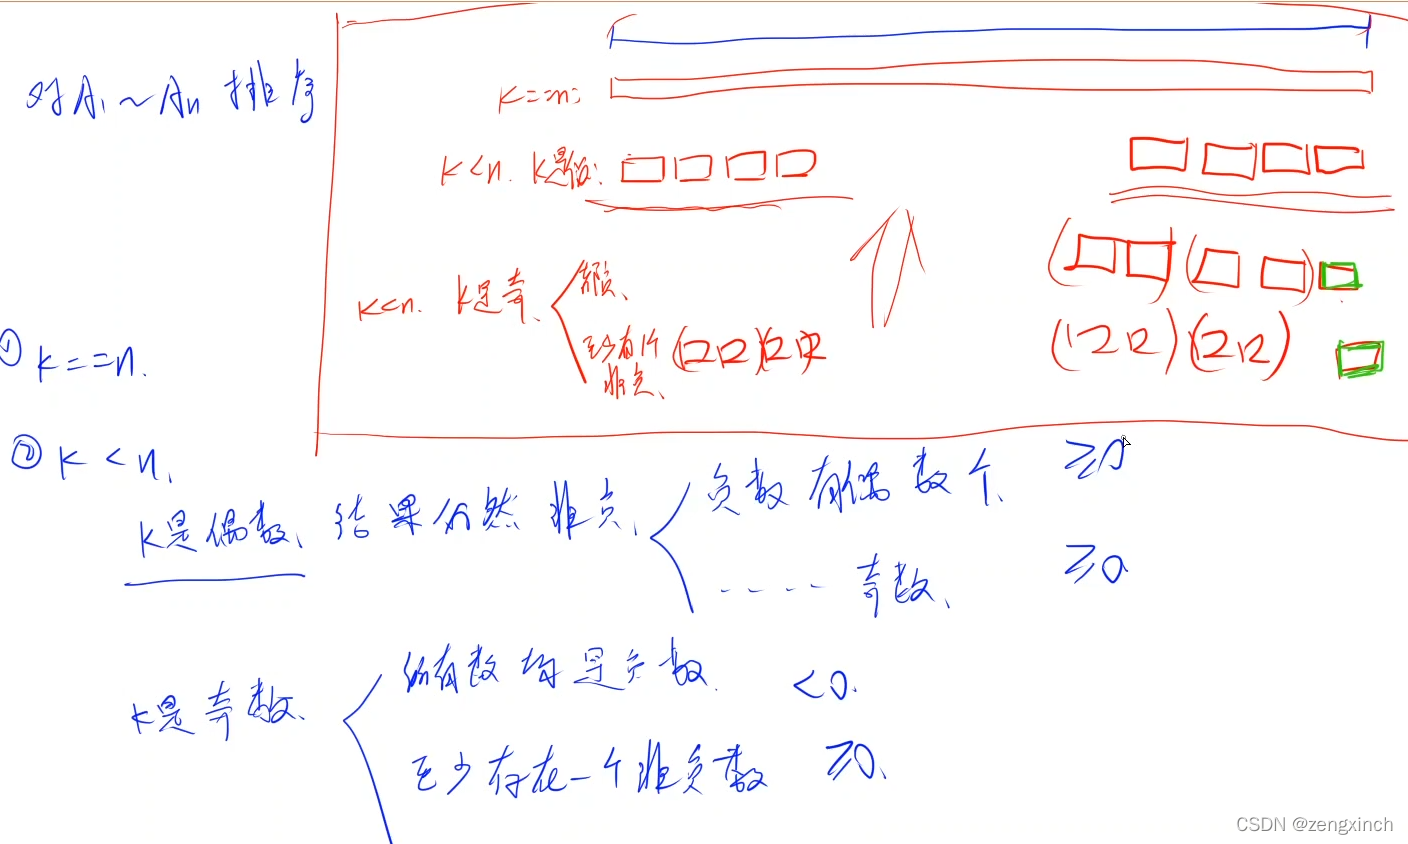 对A₁~Aₙ排序
k==n:
k<n. k是偶:
k<n. k是奇、
负、
至少有1个
非负、
① k==n.
② k<n.
k是偶数、结果仍然非负、
负数有偶数个、 ≥0
---- 奇数、 ≥0
k是奇数、
所有数均是负数. <0.
至少存在一个非负数 ≥0、
CSDN @zengxinch